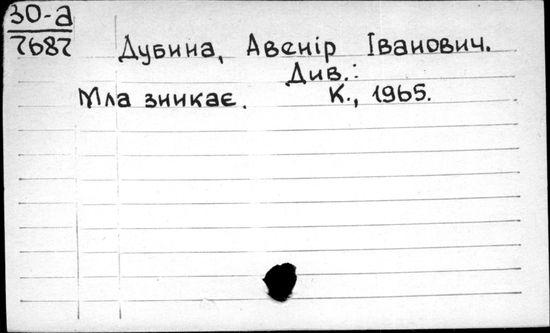 30-а
7687
Дубина, Авенір Іванович.
Див.:
Мла зникає. К., 1965.